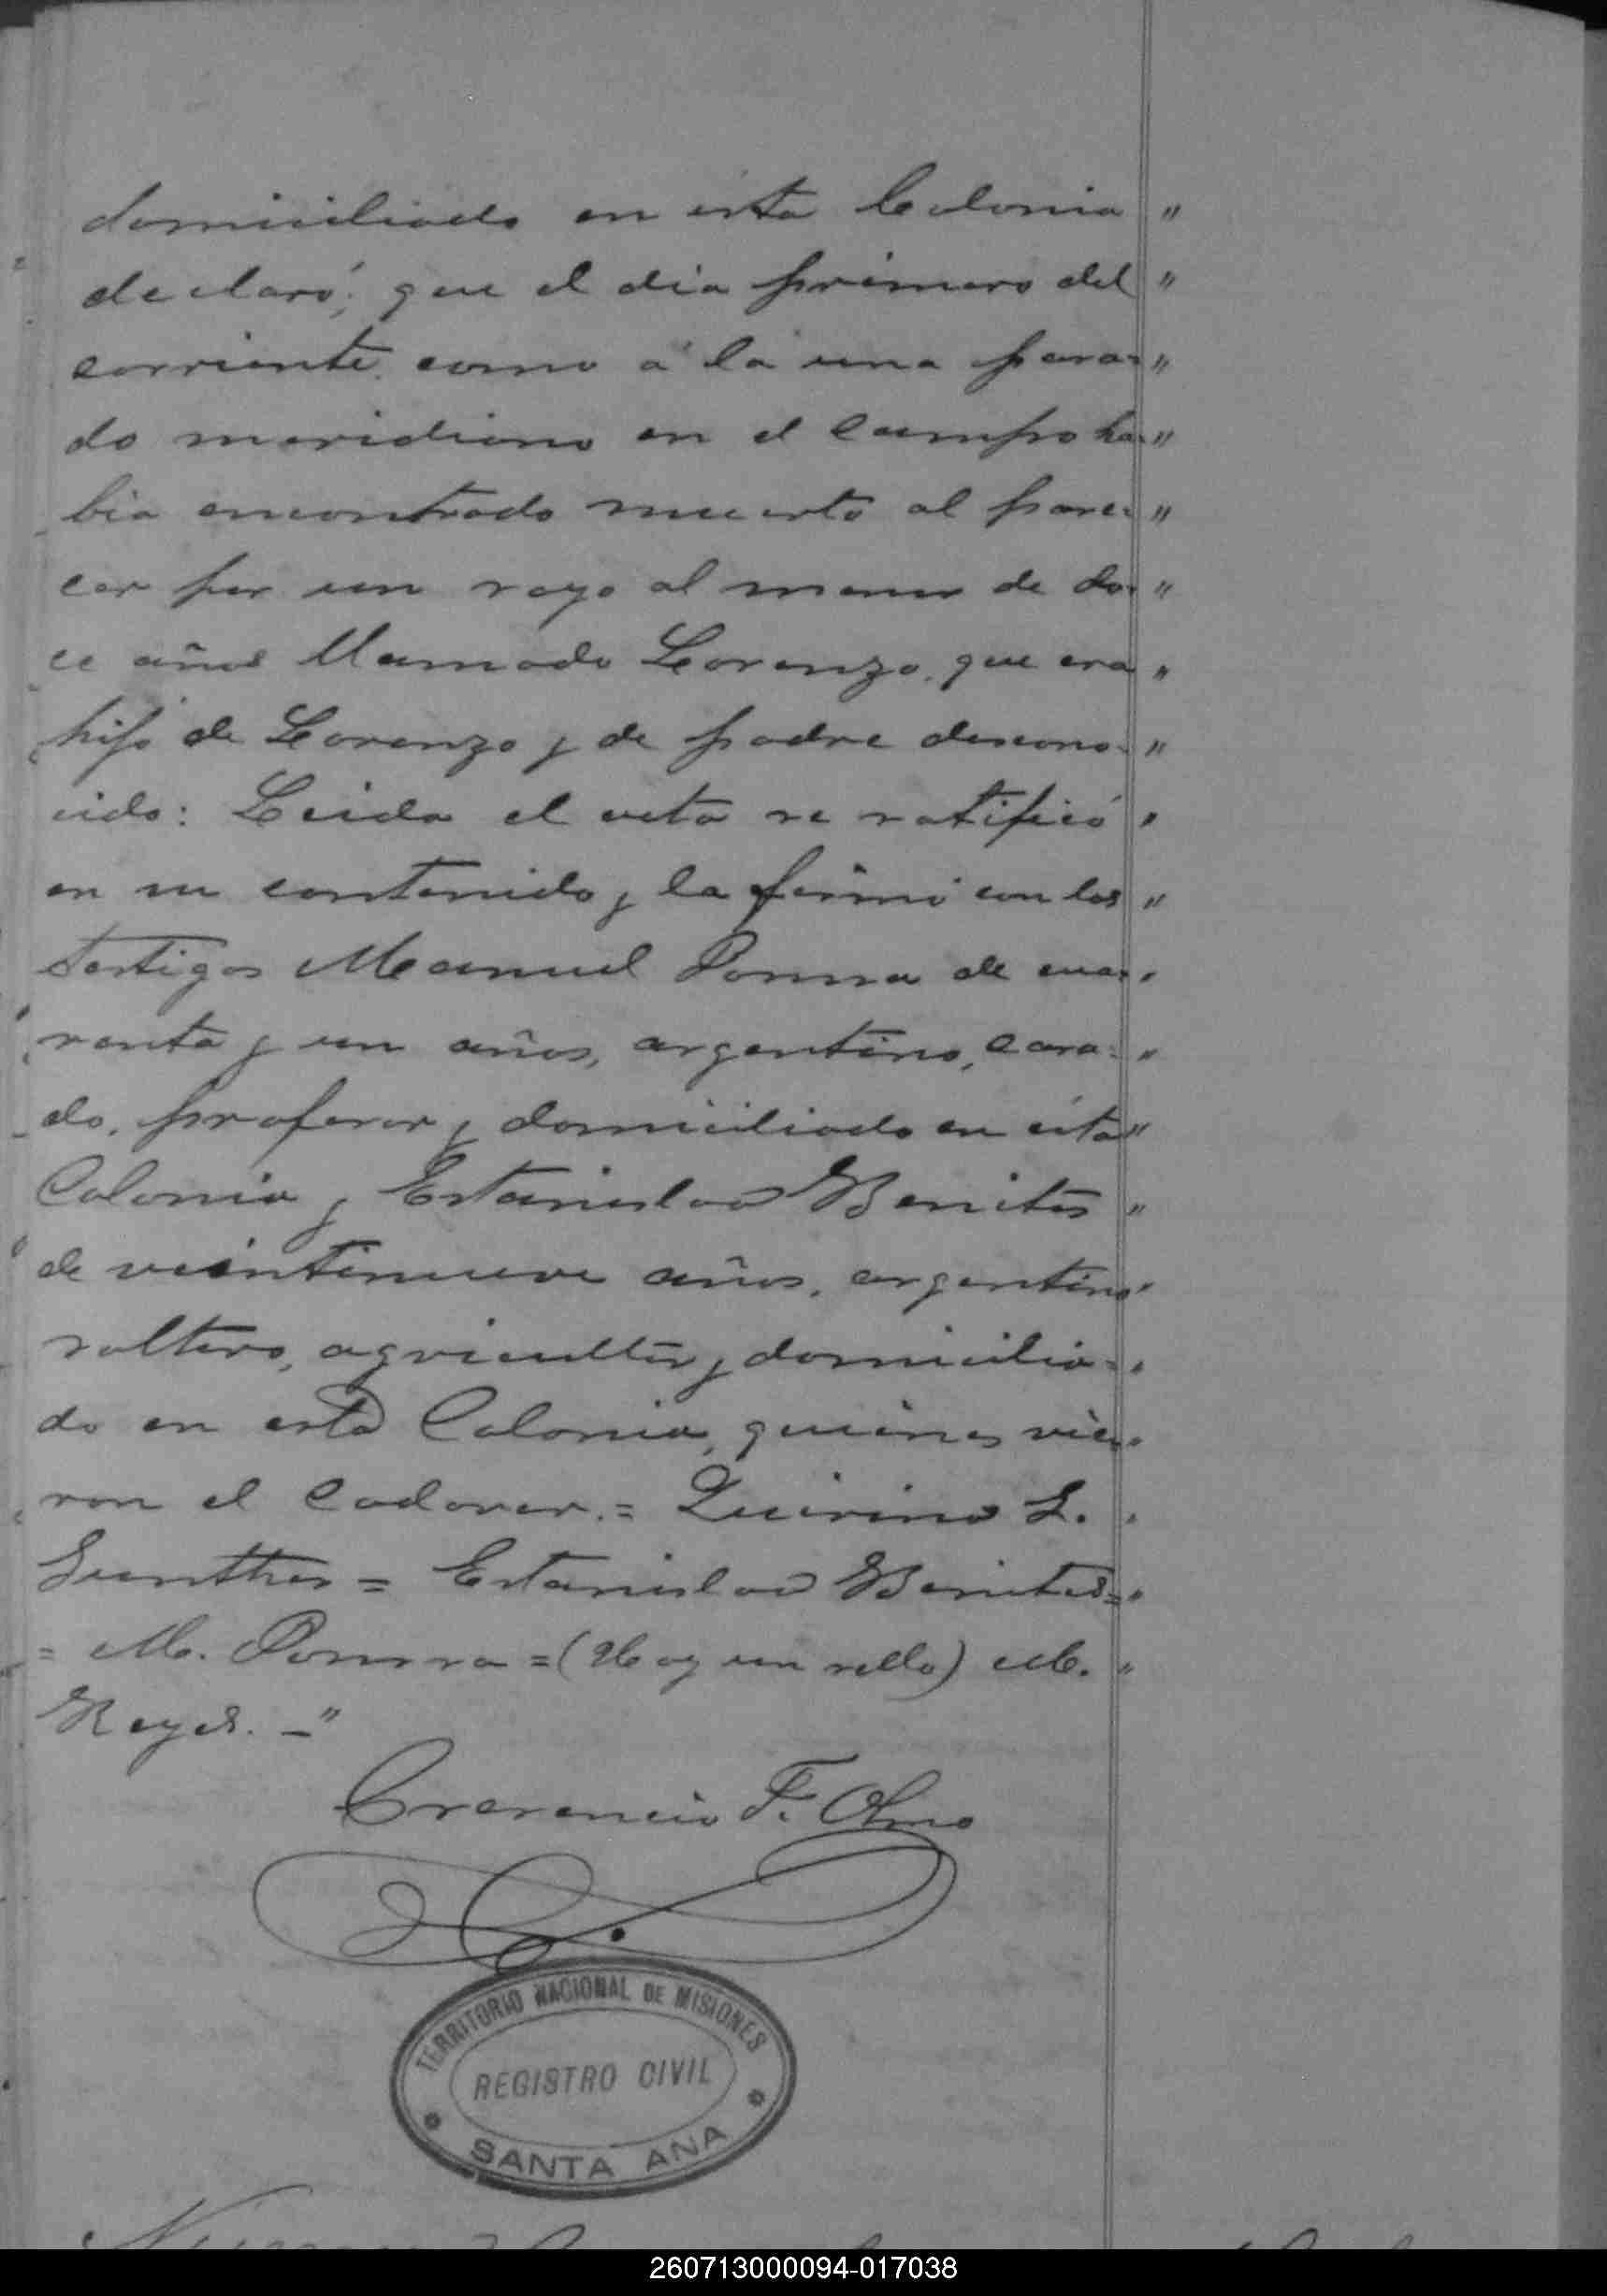 domiciliado en ésta Colonia "
declaró; que el dia primero del "
corriente como á la una pasa- "
do meridiano en el campo ha- "
bia encontrado muerto al pare- "
cer por un rayo al menor de do- "
ce años llamado Lorenzo, que era "
hijo de Lorenza y de padre descono- "
cido: Leida el acta se ratificó "
en su contenido y la firmó con los "
testigos Manuel Pomra de cua- "
renta y un años, argentino, casa- "
do, profesor y domiciliado en ésta "
Colonia y Estanislao Benites "
de veintinueve años, argentino "
soltero, agricultor y domicilia- "
do en esta Colonia, quienes vie- "
ron el cadaver.= Quirino L.
Gunther = Estanislao Benites= "
= M. Pomra = (Hay un sello) M. "
Reyes. — "
Crecencio F. Olmo
TERRITORIO NACIONAL DE MISIONES
REGISTRO CIVIL
SANTA ANA
260713000094-017038